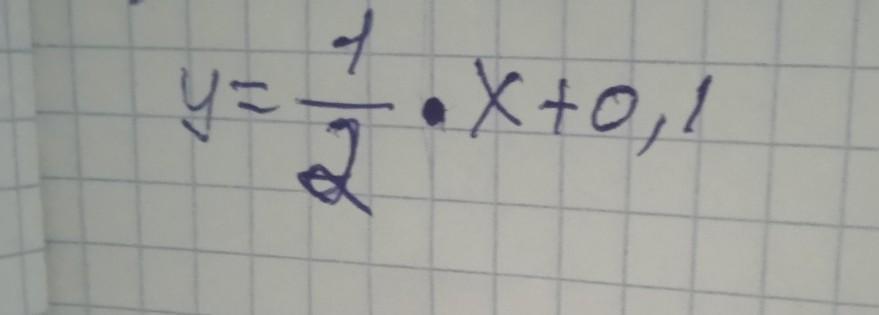 y = 1/2 • x + 0,1